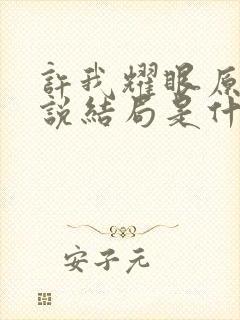 許我耀眼原
說結局是什
安子元